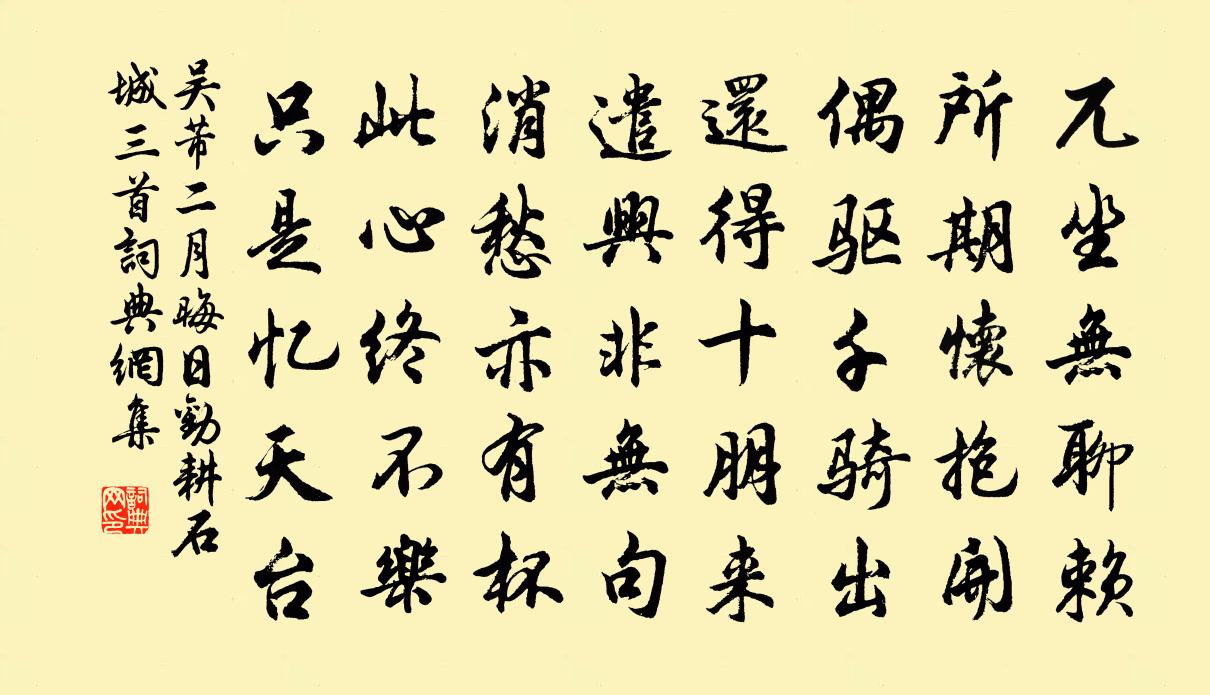 兀坐無聊赖
所期懷抱開
偶驱千骑出
還得十朋来
遣興非無句
消愁亦有杯
此心终不樂
只是忆天台
吴芾二月晦日勸耕石
城三首詞典網集
詞典
网印